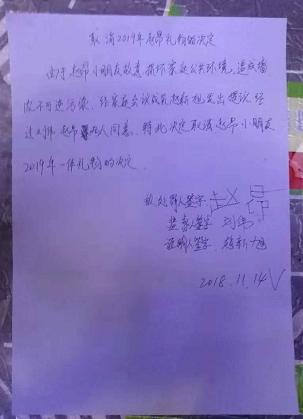 取消2019年赵昂礼物的决定
由于赵昂小朋友故意损坏家庭公共环境，造成墙
皮不可逆污染，经家庭会议成员赵新旭发出提议，经
过刘伟、赵昂本人同意，特此决定取消赵昂小朋友
2019年一件礼物的决定。
被处罚人签字：赵昂
监察人签字：刘伟
证明人签字：赵新旭
2018.11.14